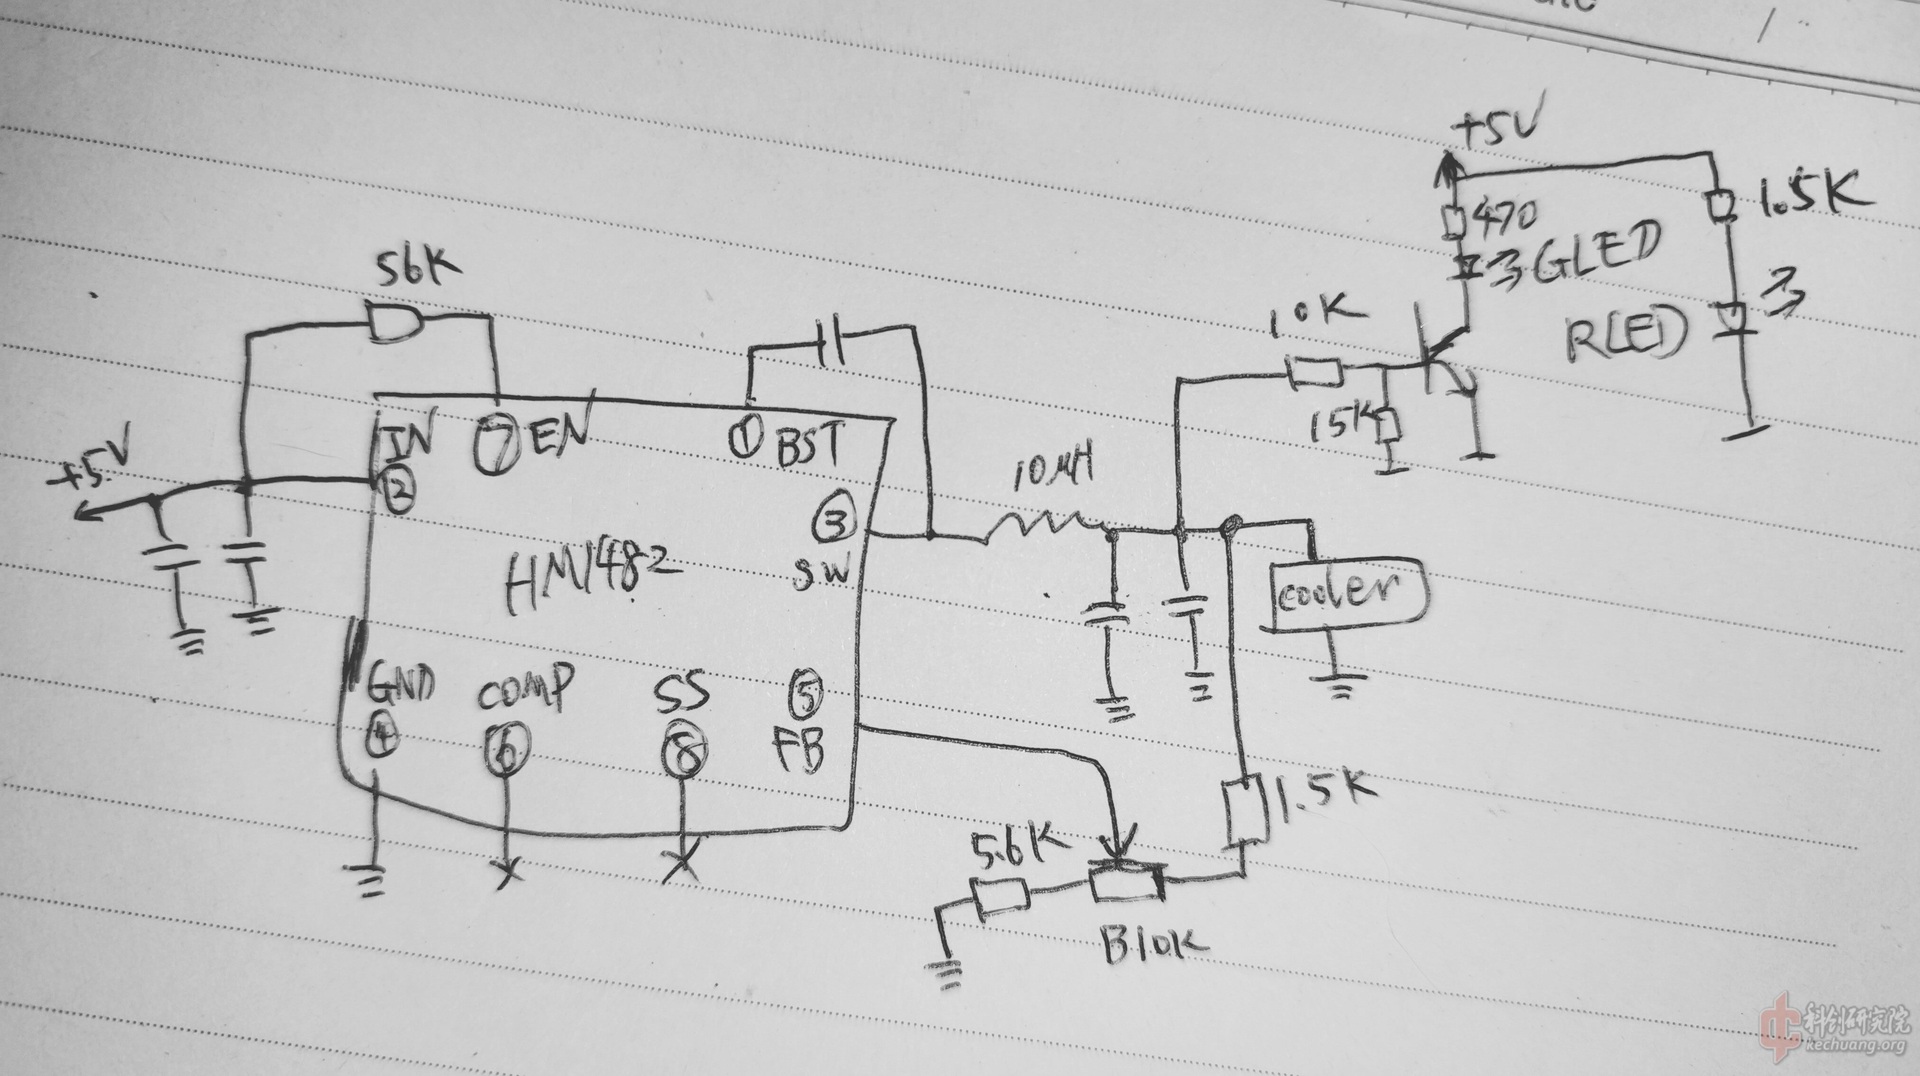 +5V
470
1.5K
GLED
RLED
10K
15K
56K
+5V
IN
②
⑦ EN
① BST
③
SW
HM1482
10μH
cooler
GND
④
COMP
⑥
SS
⑧
⑤
FB
1.5K
5.6K
B10K
科创研究院
kechuang.org